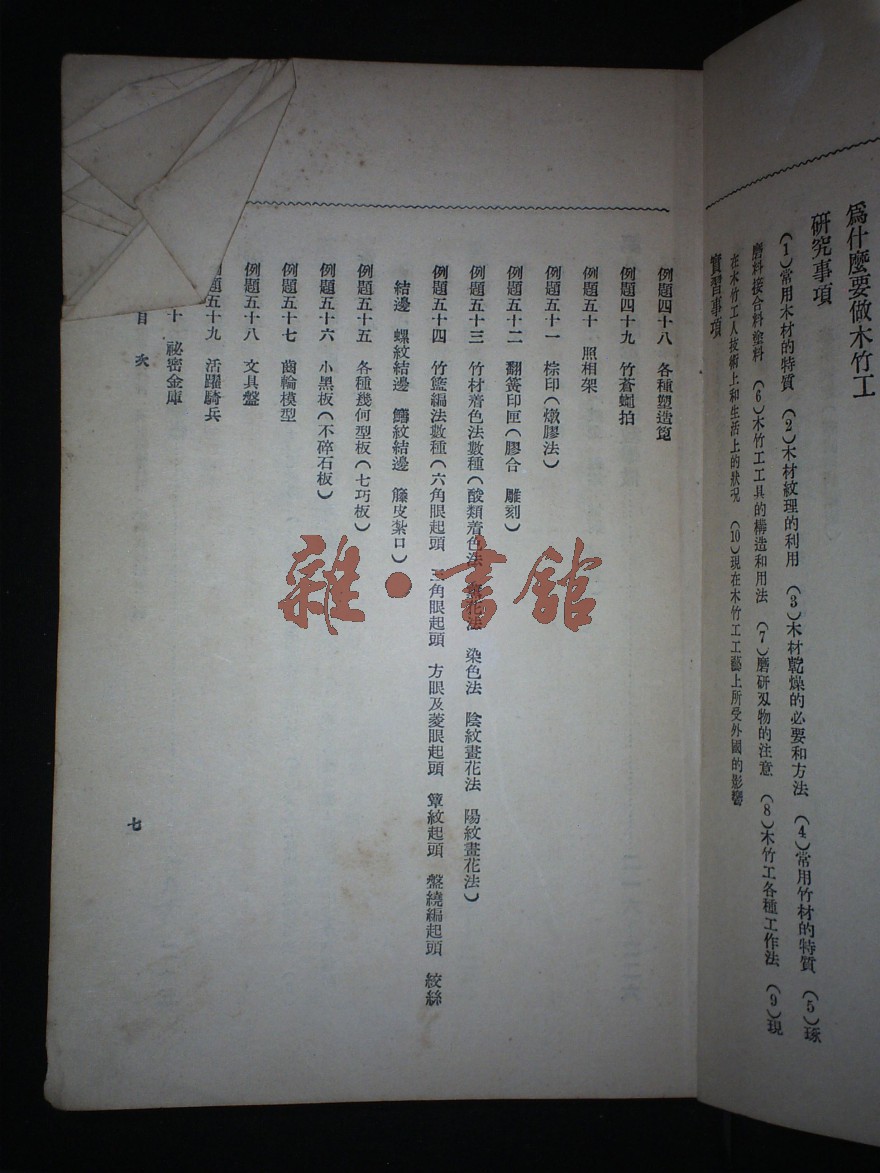 為什麼要做木竹工
研究事項
(1)常用木材的特質 (2)木材紋理的利用 (3)木材乾燥的必要和方法 (4)常用竹材的特質 (5)琢
磨料接合料塗料 (6)木竹工工具的構造和用法 (7)磨研刄物的注意 (8)木竹工各種工作法 (9)現
在木竹工人技術上和生活上的狀况 (10)現在木竹工工藝上所受外國的影響
實習事項
例題四十八 各種塑造箆
例題四十九 竹蒼蠅拍
例題五十 照相架
例題五十一 棕印(燉膠法)
例題五十二 翻簧印匣(膠合 雕刻)
例題五十三 竹材着色法數種(酸類着色法 花法 染色法 陰紋畫花法 陽紋畫花法)
例題五十四 竹籃編法數種(六角眼起頭 三角眼起頭 方眼及菱眼起頭 簟紋起頭 盤繞編起頭 絞絲
結邊 螺紋結邊 鰭紋結邊 籐皮紮口)
例題五十五 各種幾何型板(七巧板)
例題五十六 小黑板(不碎石板)
例題五十七 齒輪模型
例題五十八 文具盤
題五十九 活躍騎兵
十 祕密金庫
目次
七
雜·書館